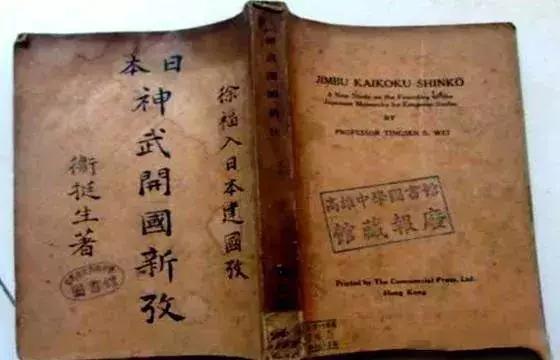 徐福入日本建國攷
日本
神武開國新攷
衞挺生著
圖書館
JIMBU KAIKOKU SHINKŌ
A New Study on the Founding of the
Japanese Monarchy
BY
PROFESSOR TINGSEN S. WEI
高雄中學圖書館
館藏報廢
Printed by The Commercial Press, Ltd.
Hong Kong